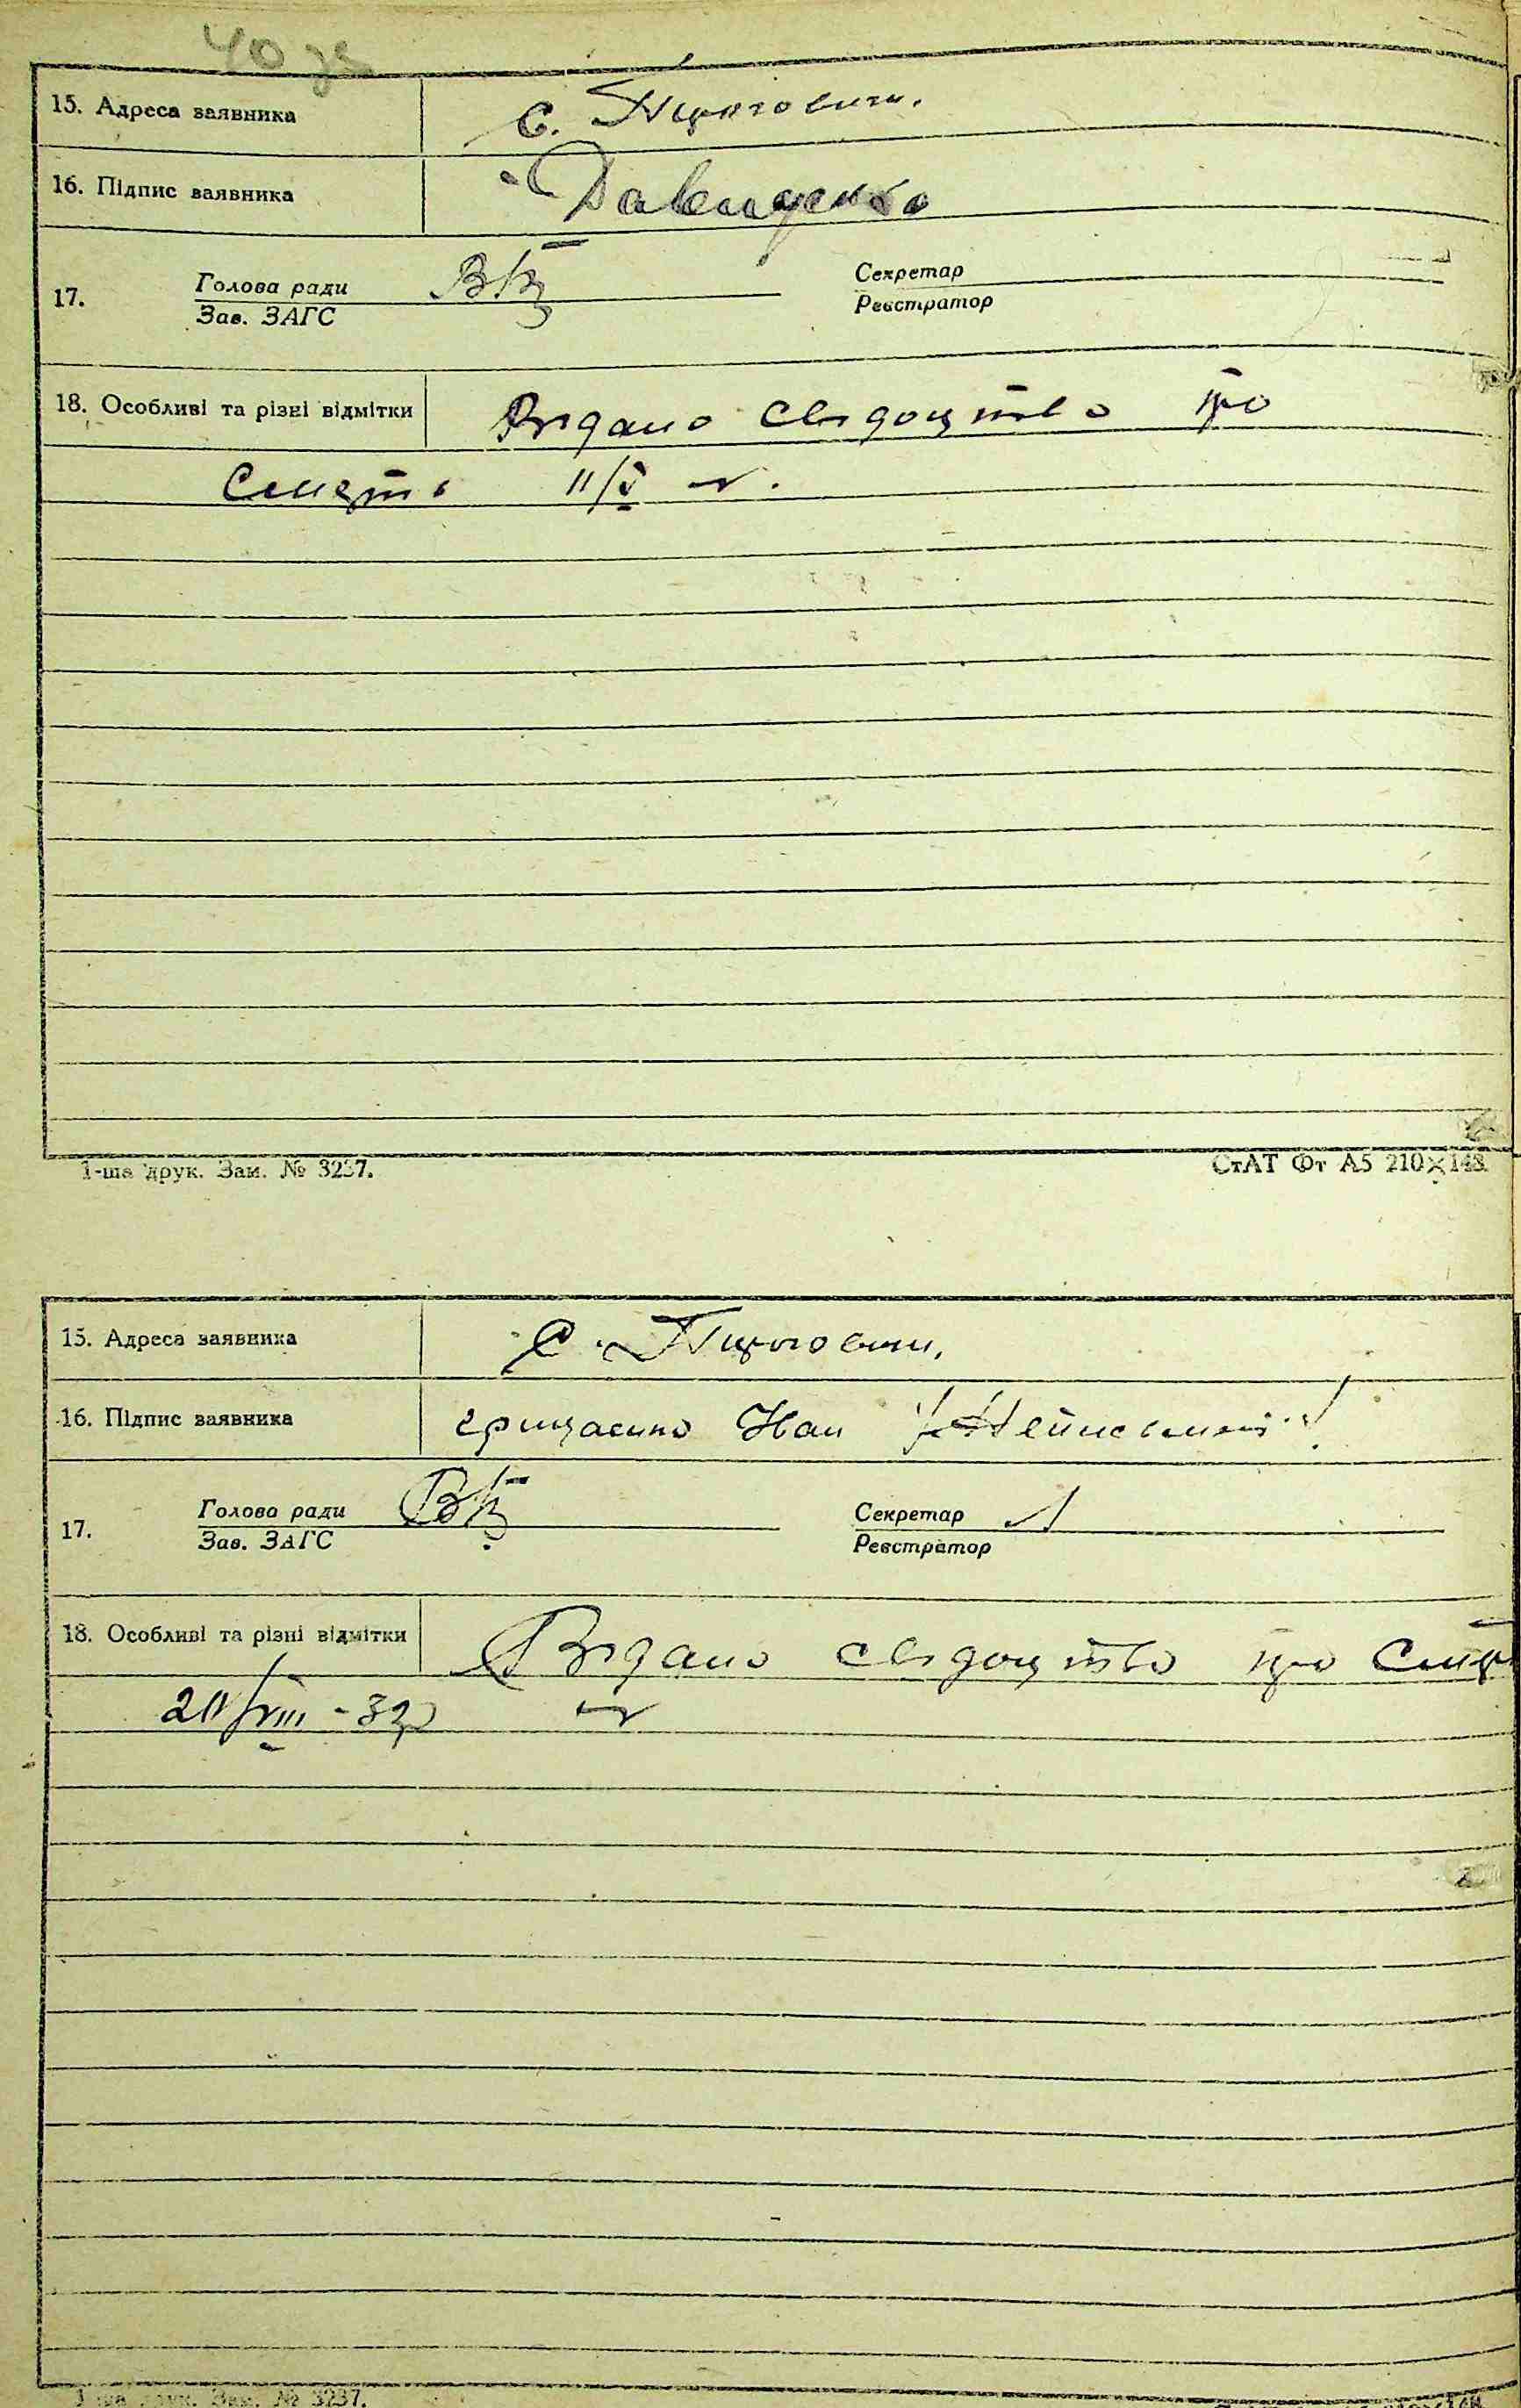 40 зв
15. Адреса заявника с. Пироговичі.
16. Підпис заявника Давиденко
17. Голова ради Секретар
Зав. ЗАГС Реєстратор
18. Особливі та різні відмітки Видано свідоцтво про
смерть 11/V
1-ша друк. Зам. № 3237. СтАТ Фт А5 210×148
15. Адреса заявника с. Пироговичі,
16. Підпис заявника Неписьмен
17. Голова ради Секретар
Зав. ЗАГС Реєстратор
18. Особливі та різні відмітки Видано свідоцтво про смер
/VIII -32
1-ша друк. Зам. № 3237.